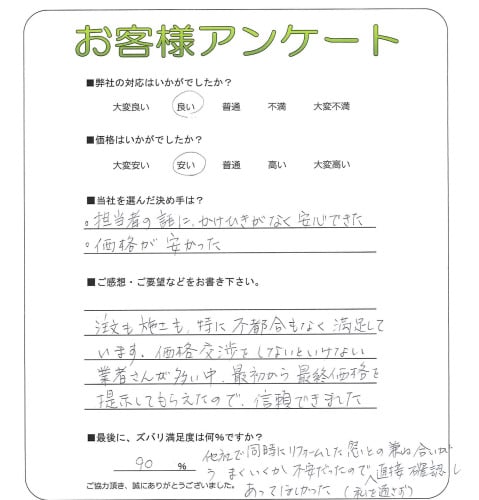 お客様アンケート
■弊社の対応はいかがでしたか？
大変良い 良い 普通 不満 大変不満
■価格はいかがでしたか？
大変安い 安い 普通 高い 大変高い
■当社を選んだ決め手は？
。担当者の話に、かけひきがなく安心できた
。価格が安かった
■ご感想・ご要望などをお書き下さい。
注文も施工も、特に不都合もなく満足して
います。価格交渉をしないといけない
業者さんが多い中、最初から最終価格を
提示してもらえたので、信頼できました
■最後に、ズバリ満足度は何％ですか？
90 ％
他社で同時にリフォームした窓との兼ね合いが
うまくいくか不安だったので、直接確認し
あってほしかった（私を通さず）
ご協力頂き、誠にありがとうございました。